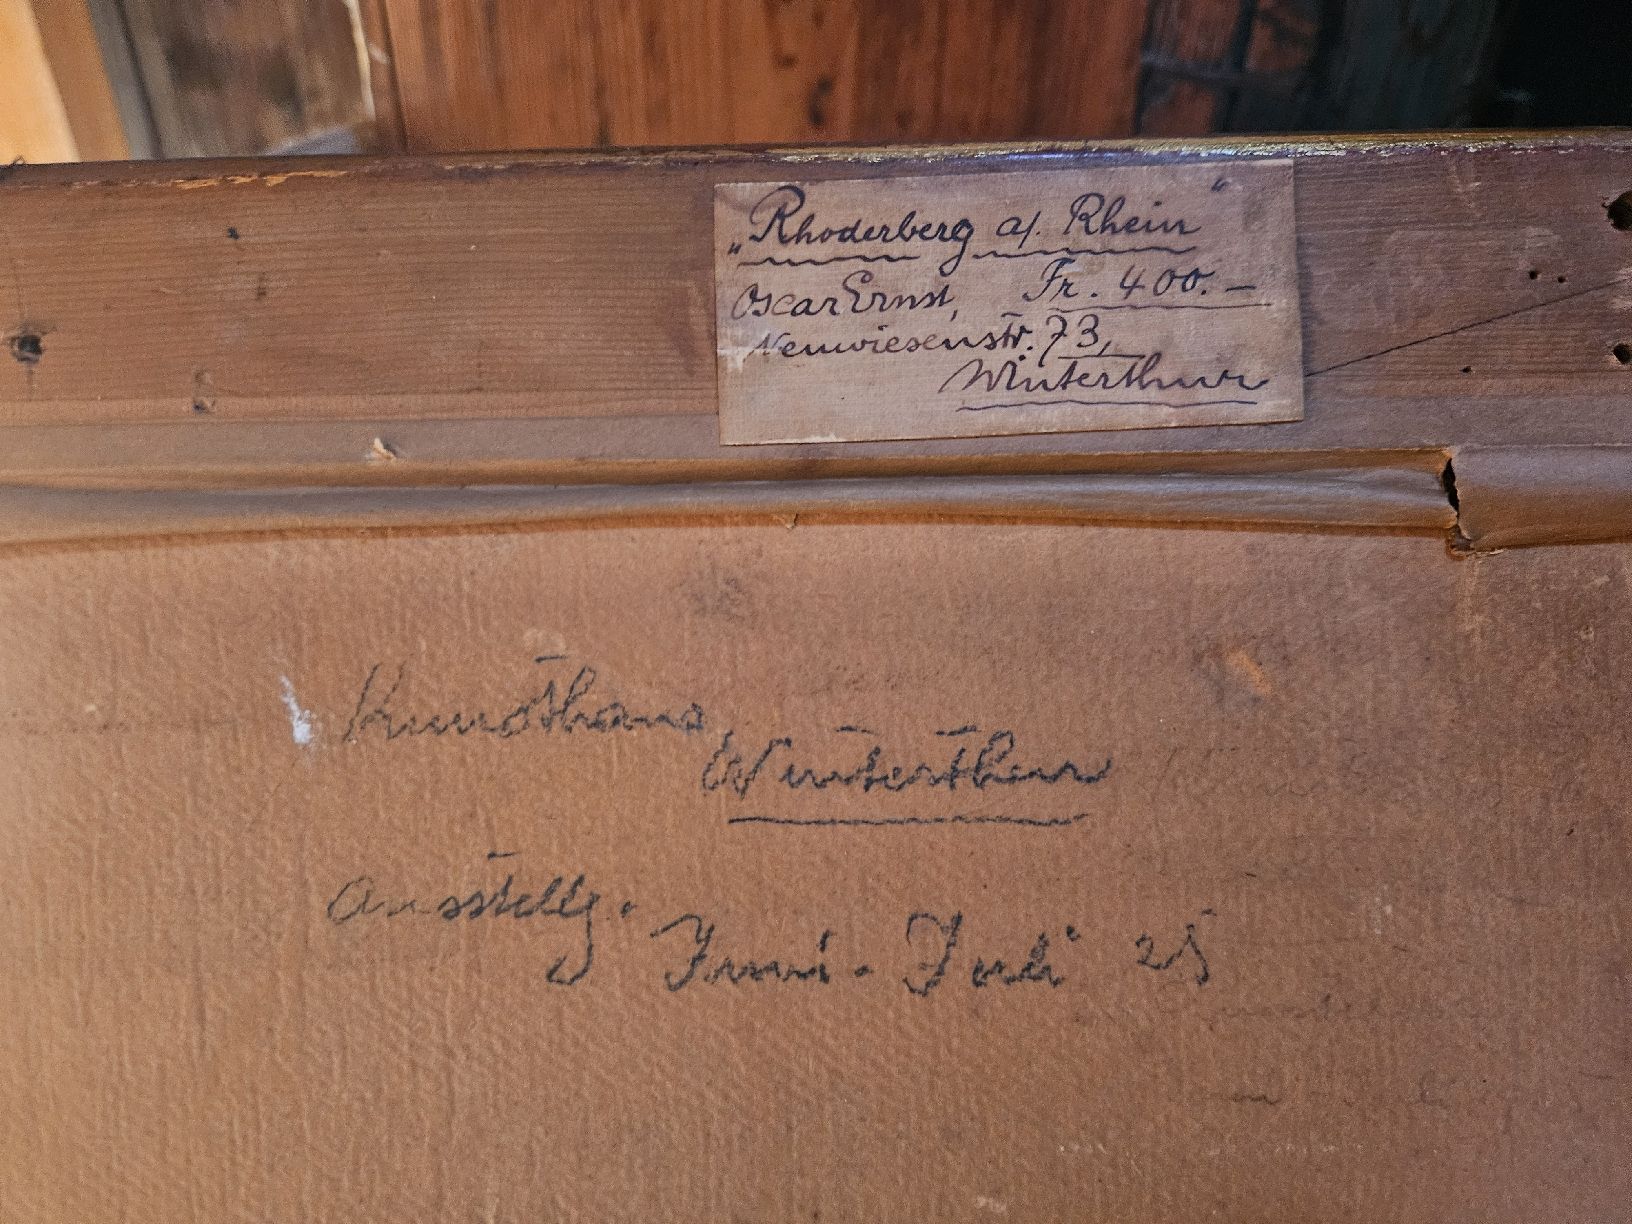 „Rhoderberg a/. Rhein“
Oscar Ernst, Fr. 400.–
Neuwiesenstr. 73,
Winterthur
Kunsthaus
Winterthur
Ausstellg.
Juni - Juli 25